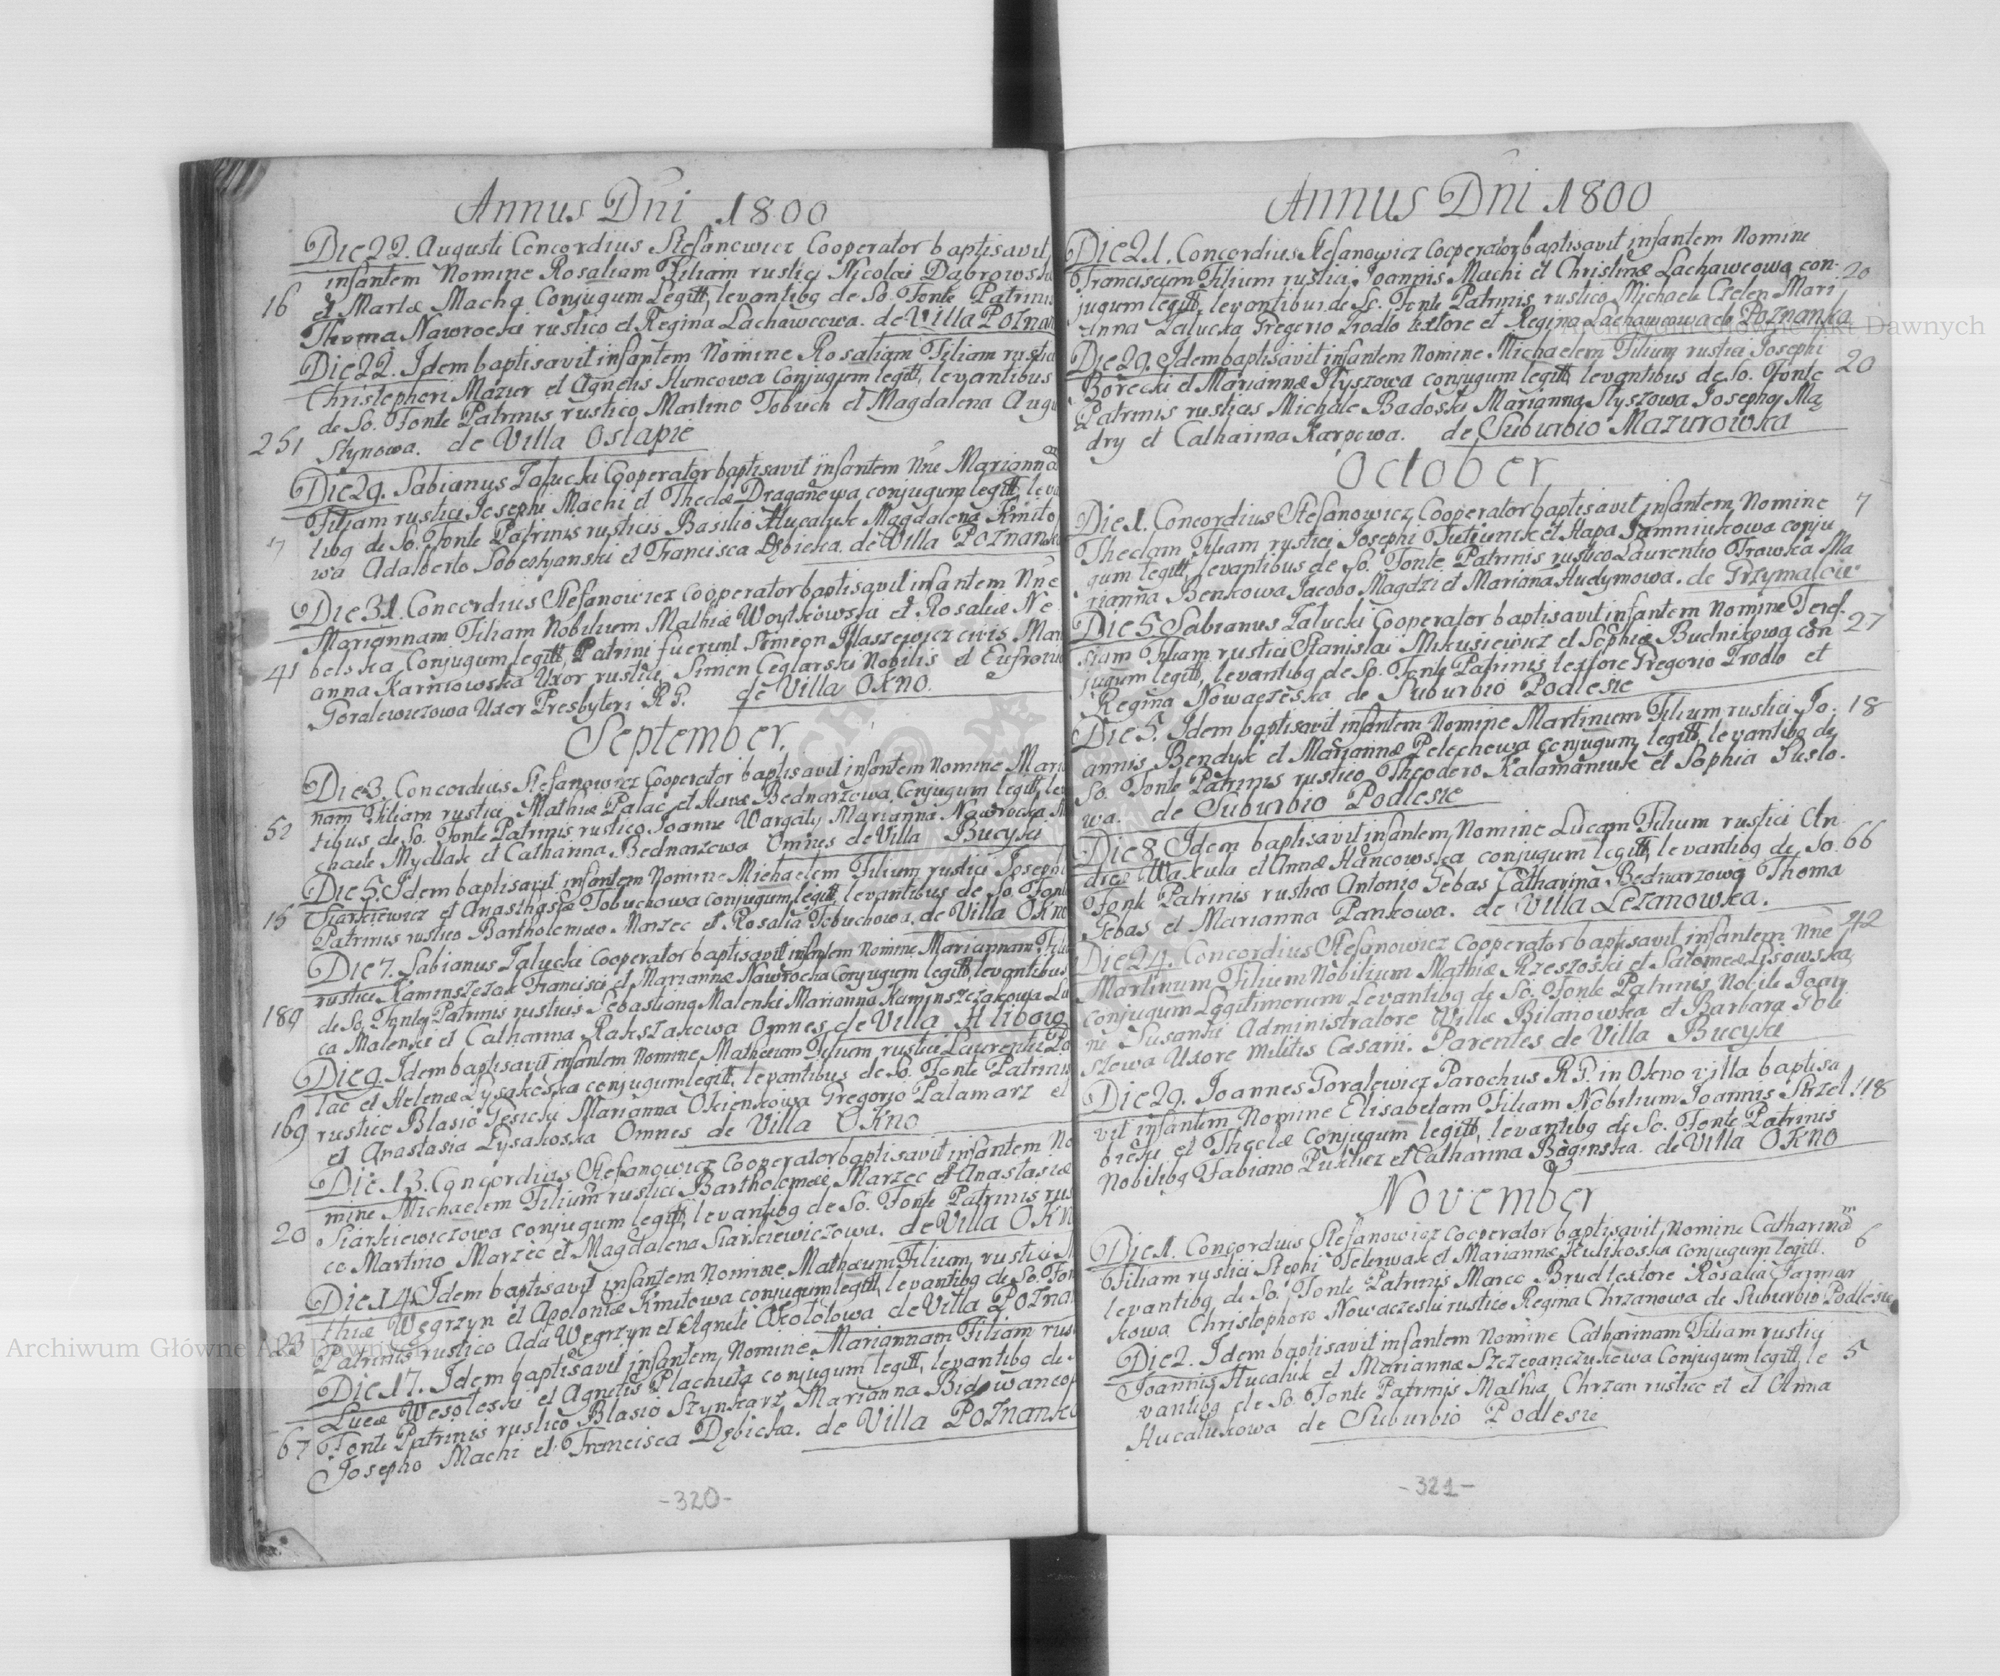 Annus Dni 1800
Die 22. Augusti Concordius Stefanowicz Cooperator baptisavit
infantem Nomine Rosaliam Filiam rustici Nicolai Dąbrowski
16 et Martæ Macha Conjugum Legitt, levantibg de So. Fonte Patrinis
Thoma Nawrocki rustico et Regina Lachawcowa. de Villa Poznan
Die 22. Idem baptisavit infantem Nomine Rosaliam Filiam rustici
Christophori Mazur et Agnetis Huncowa Conjugum legitt, levantibus
de So. Fonte Patrinis rustico Martino Tobuch et Magdalena Augu
251 stynowa. de Villa Ostapie
Die 29. Sabianus Zalucki Cooperator baptisavit infantem Nne Marianna
Filiam rustici Josephi Machi et Theclæ Draganowa conjugum legitt, leva
7 tibg de So. Fonte Patrinis rusticis Basilio Hucaluk Magdalena Kmito
wa Adalberto Sobestyanski et Francisca Dębicka. de Villa Poznank
Die 31. Concordius Stefanowicz Cooperator baptisavit infantem Nne
Mariannam Filiam Nobilium Mathiæ Woytkowski et Rosaliæ Ne
41 belska Conjugum legitt, Patrini fuerunt Simeon Illaszewicz civis Mari
anna Karniowska Uxor rustici, Simon Ceglarski Nobilis et Eufrozin
Goralewiczowa Uxor Presbyteri RG. de Villa Okno.
September.
Die 3. Concordius Stefanowicz Cooperator baptisavit infantem Nomine Maria
nam Filiam rustici Mathiæ Palac et Bednarzowa Conjugum legitt, levan
52 tibus de So. Fonte Patrinis rustico Joanne Wargaty Marianna Nawrocka Mi
chaele Mydlak et Catharina Bednarzowa Omnes de Villa Bucyki
Die 5. Idem baptisavit infantem Nomine Michaelem Filium rustici Josephi
15 Siarkiewicz et Anasthasiæ Tobuchowa conjugum legitt, levantibus de So. Fonte
Patrinis rustico Bartholomeo Marzec et Rosalia Tobuchowa. de Villa Okno
Die 7. Sabianus Zalucki Cooperator baptisavit infantem Nomine Mariannam Filiam
rustici Kaminszczak Francisci et Mariannæ Nawrocka Conjugum legitt, levantibus
189 de So. Fonte Patrinis rusticis Sebastiano Malenki Marianna Kaminszczakowa Lu
ca Malenki et Catharina Rakszakowa Omnes de Villa Hlibow
Die 9. Idem baptisavit infantem Nomine Mathæum Filium rustici Laurentii Pa
lac et Helenæ Lysakoska conjugum legitt, levantibus de So. Fonte Patrinis
169 rustico Blasio Gesicki Marianna Okienkowa Gregorio Palamarz et
et Anastasia Lysakoska Omnes de Villa Okno
Die 13. Concordius Stefanowicz Cooperator baptisavit infantem No
mine Michaelem Filium rustici Bartholomæi Marzec et Anastasiæ
20 Siarkiewiczowa conjugum legitt, levantibg de So. Fonte Patrinis rusti
co Martino Marzec et Magdalena Siarkiewiczowa. de Villa Okno
Die 14. Idem baptisavit infantem Nomine Mathæum Filium rustici
thiæ Węgrzyn et Apoloniæ Kmitowa conjugum legitt, levantibg de So. Fon
23 Patrinis rustico Ada Węgrzyn et Agnete Wolotowa de Villa Poznan
Die 17. Idem baptisavit infantem Nomine Mariannam Filiam rus
Lucæ Wesoloski et Agnetis Plachuta conjugum legitt, levantibg de
67 Fonte Patrinis rustico Blasio Szynkarz Marianna
Josepho Machi et Francisca Dębicka. de Villa Poznank
-320-
Annus Dni 1800
Die 21. Concordius Stefanowicz Cooperator baptisavit infantem Nomine
Franciscum Filium rustici Joannis Machi et Christinæ Lachawcowa con- 20
jugum legitt, levantibus de So. Fonte Patrinis rustico Michaele Cielen Mari
anna Zalucka Gregorio Frodlo textore et Regina Lachawcowa de Poznanka
Die 29. Idem baptisavit infantem Nomine Michaelem Filium rustici Josephi 20
Borecki et Mariannæ Slyszowa conjugum legitt, levantibus de So. Fonte
Patrinis rusticis Michale Badoski Marianna Slyszowa Josepho Mą
dry et Catharina Karpowa. de Suburbio Mazurowka
October
Die 1. Concordius Stefanowicz Cooperator baptisavit infantem Nomine 7
Theclam Filiam rustici Josephi Tutiunik et Hapa conju
gum legitt, levantibus de So. Fonte Patrinis rustico Laurentio Trawka Ma
rianna Benkowa Jacobo Magdzi et Mariana Hudymowa. de Grzymalow
Die 5. Sabianus Zalucki Cooperator baptisavit infantem Nomine Teref- 27
siam Filiam rustici Stanislai Mikusiewicz et Sophiæ Budnikowa con
jugum legitt, levantibg de So. Fonte Patrinis textore Gregorio Frodlo et
Regina Nowaczeska de Suburbio Podlesie
Die 5. Idem baptisavit infantem Nomine Martinum Filium rustici Jo- 18
annis Bendyk et Mariannæ Pelechowa conjugum legitt, levantibg de
So. Fonte Patrinis rustico Theodoro Kalamaniuk et Sophia Suslo-
wa. de Suburbio Podlesie
Die 8. Idem baptisavit infantem Nomine Lucam Filium rustici An
dreæ Wakula et Annæ Hancowska conjugum legitt, levantibg de So. 66
Fonte Patrinis rustico Antonio Gebas Catharina Bednarzowa Thoma
Gebas et Marianna Pankowa. de Villa Lezanowka.
Die 24. Concordius Stefanowicz Cooperator baptisavit infantem Nne 42
Martinum Filium Nobilium Mathiæ Rzeszoski et Salomeæ Lisowska
Conjugum Legitimorum Levantibg de So. Fonte Patrinis Nobile Joan
ne Susanski Administratore Villæ Bilanowka et Barbara Gole
szewa Uxore Militis Cæsarii. Parentes de Villa Bucyki
Die 29. Joannes Goralewicz Parochus RG. in Okno villa baptisa
vit infantem Nomine Elisabetam Filiam Nobilium Joannis Strzel 118
bicki et Theclæ Conjugum legitt, levantibg de So. Fonte Patrinis
Nobilibg Fabiano Puklicz et Catharina Baginska. de Villa Okno
November
Die 1. Concordius Stefanowicz Cooperator baptisavit Nomine Catharinam
Filiam rustici Stephi Telerwak et Mariannæ Kulikoska conjugum legitt. 6
levantibg de So. Fonte Patrinis Marco Brud textore Rosalia Jazmar
kowa Christophoro Nowaczeski rustico Regina Chrzanowa de Suburbio Podlesie
Die 2. Idem baptisavit infantem Nomine Catharinam Filiam rustici
Joannis Hucaluk et Mariannæ Szczepanczukowa Conjugum legitt, le 5
vantibg de So. Fonte Patrinis Mathia Chrzan rustico et et Anna
Hucalukowa de Suburbio Podlesie
-321-
Archiwum Główne Akt Dawnych
Archiwum Główne Akt Dawnych